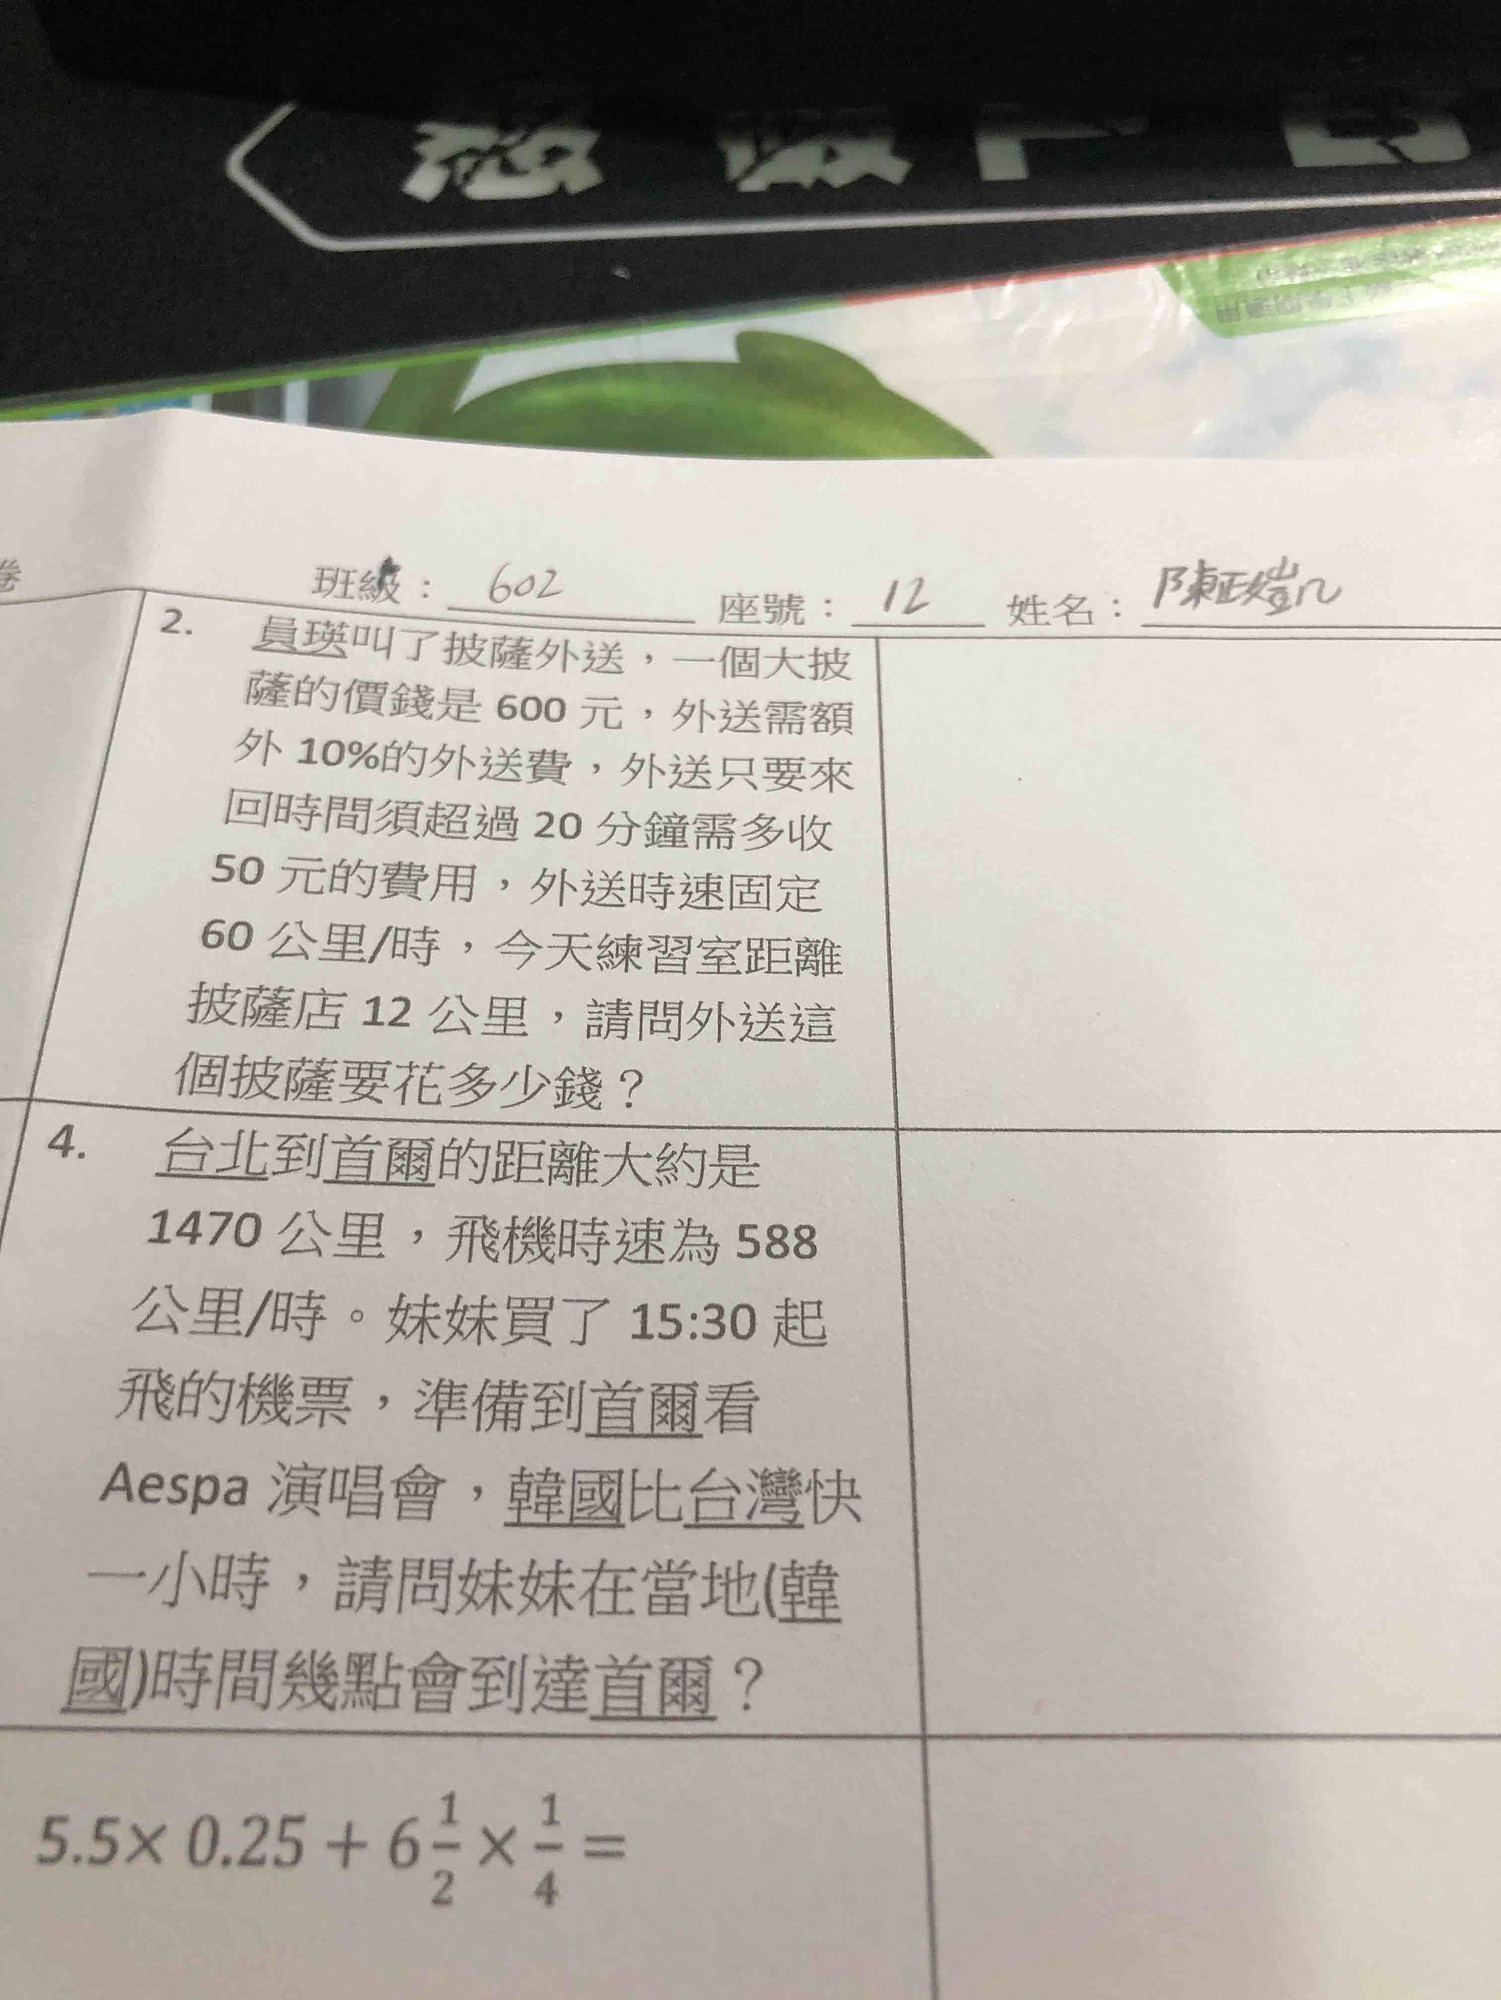 卷
班級： 602 座號： 12 姓名：陳政凱
2. 員瑛叫了披薩外送，一個大披
薩的價錢是 600 元，外送需額
外 10%的外送費，外送只要來
回時間須超過 20 分鐘需多收
50 元的費用，外送時速固定
60 公里/時，今天練習室距離
披薩店 12 公里，請問外送這
個披薩要花多少錢？
4. 台北到首爾的距離大約是
1470 公里，飛機時速為 588
公里/時。妹妹買了 15:30 起
飛的機票，準備到首爾看
Aespa 演唱會，韓國比台灣快
一小時，請問妹妹在當地(韓
國)時間幾點會到達首爾？
5.5× 0.25 + 6 1/2 × 1/4 =